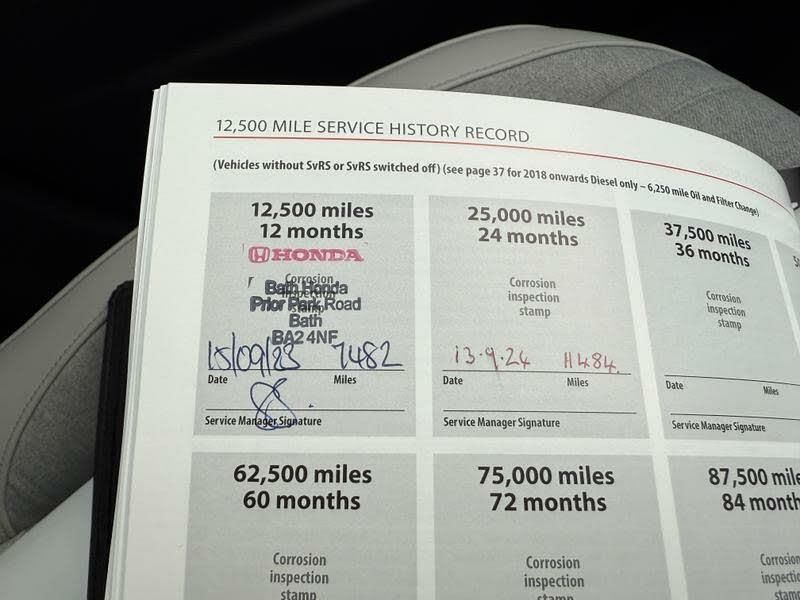 12,500 MILE SERVICE HISTORY RECORD
(Vehicles without SvRS or SvRS switched off) (see page 37 for 2018 onwards Diesel only – 6,250 mile Oil and Filter Change)
12,500 miles
12 months
HONDA
Corrosion
inspection
stamp
Bath Honda
Prior Park Road
Bath
BA2 4NF
15/09/23 7482
Date Miles
Service Manager Signature
25,000 miles
24 months
Corrosion
inspection
stamp
13.9.24 11484.
Date Miles
Service Manager Signature
37,500 miles
36 months
Corrosion
inspection
stamp
Date Miles
Service Manager Signature
62,500 miles
60 months
Corrosion
inspection
stamp
75,000 miles
72 months
Corrosion
inspection
stamp
87,500 mile
84 month
Corrosion
inspectio
stamp